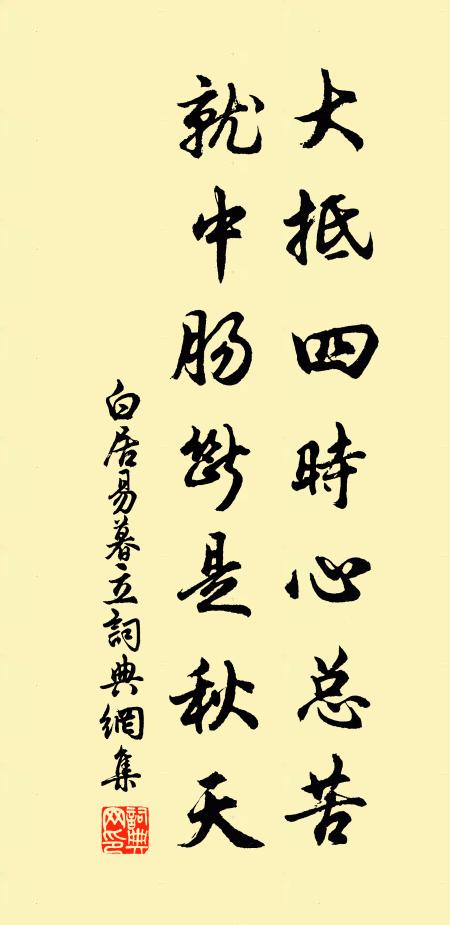 大抵四時心总苦
就中肠斷是秋天
白居易暮立詞典網集
詞典網印